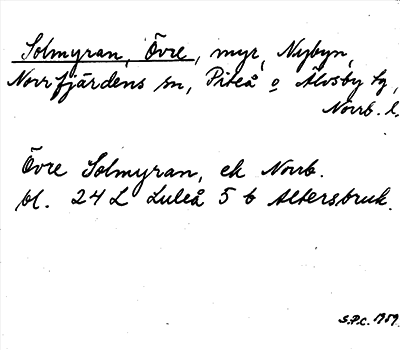 Solmyran, Övre, myr, Nybyn,
Norrfjärdens sn, Piteå o Älvsby tg,
Norrb. l.
Övre Solmyran, ek Norrb.
bl. 24 L Luleå 5 b Altersbruk.
S.P.C. 1959.